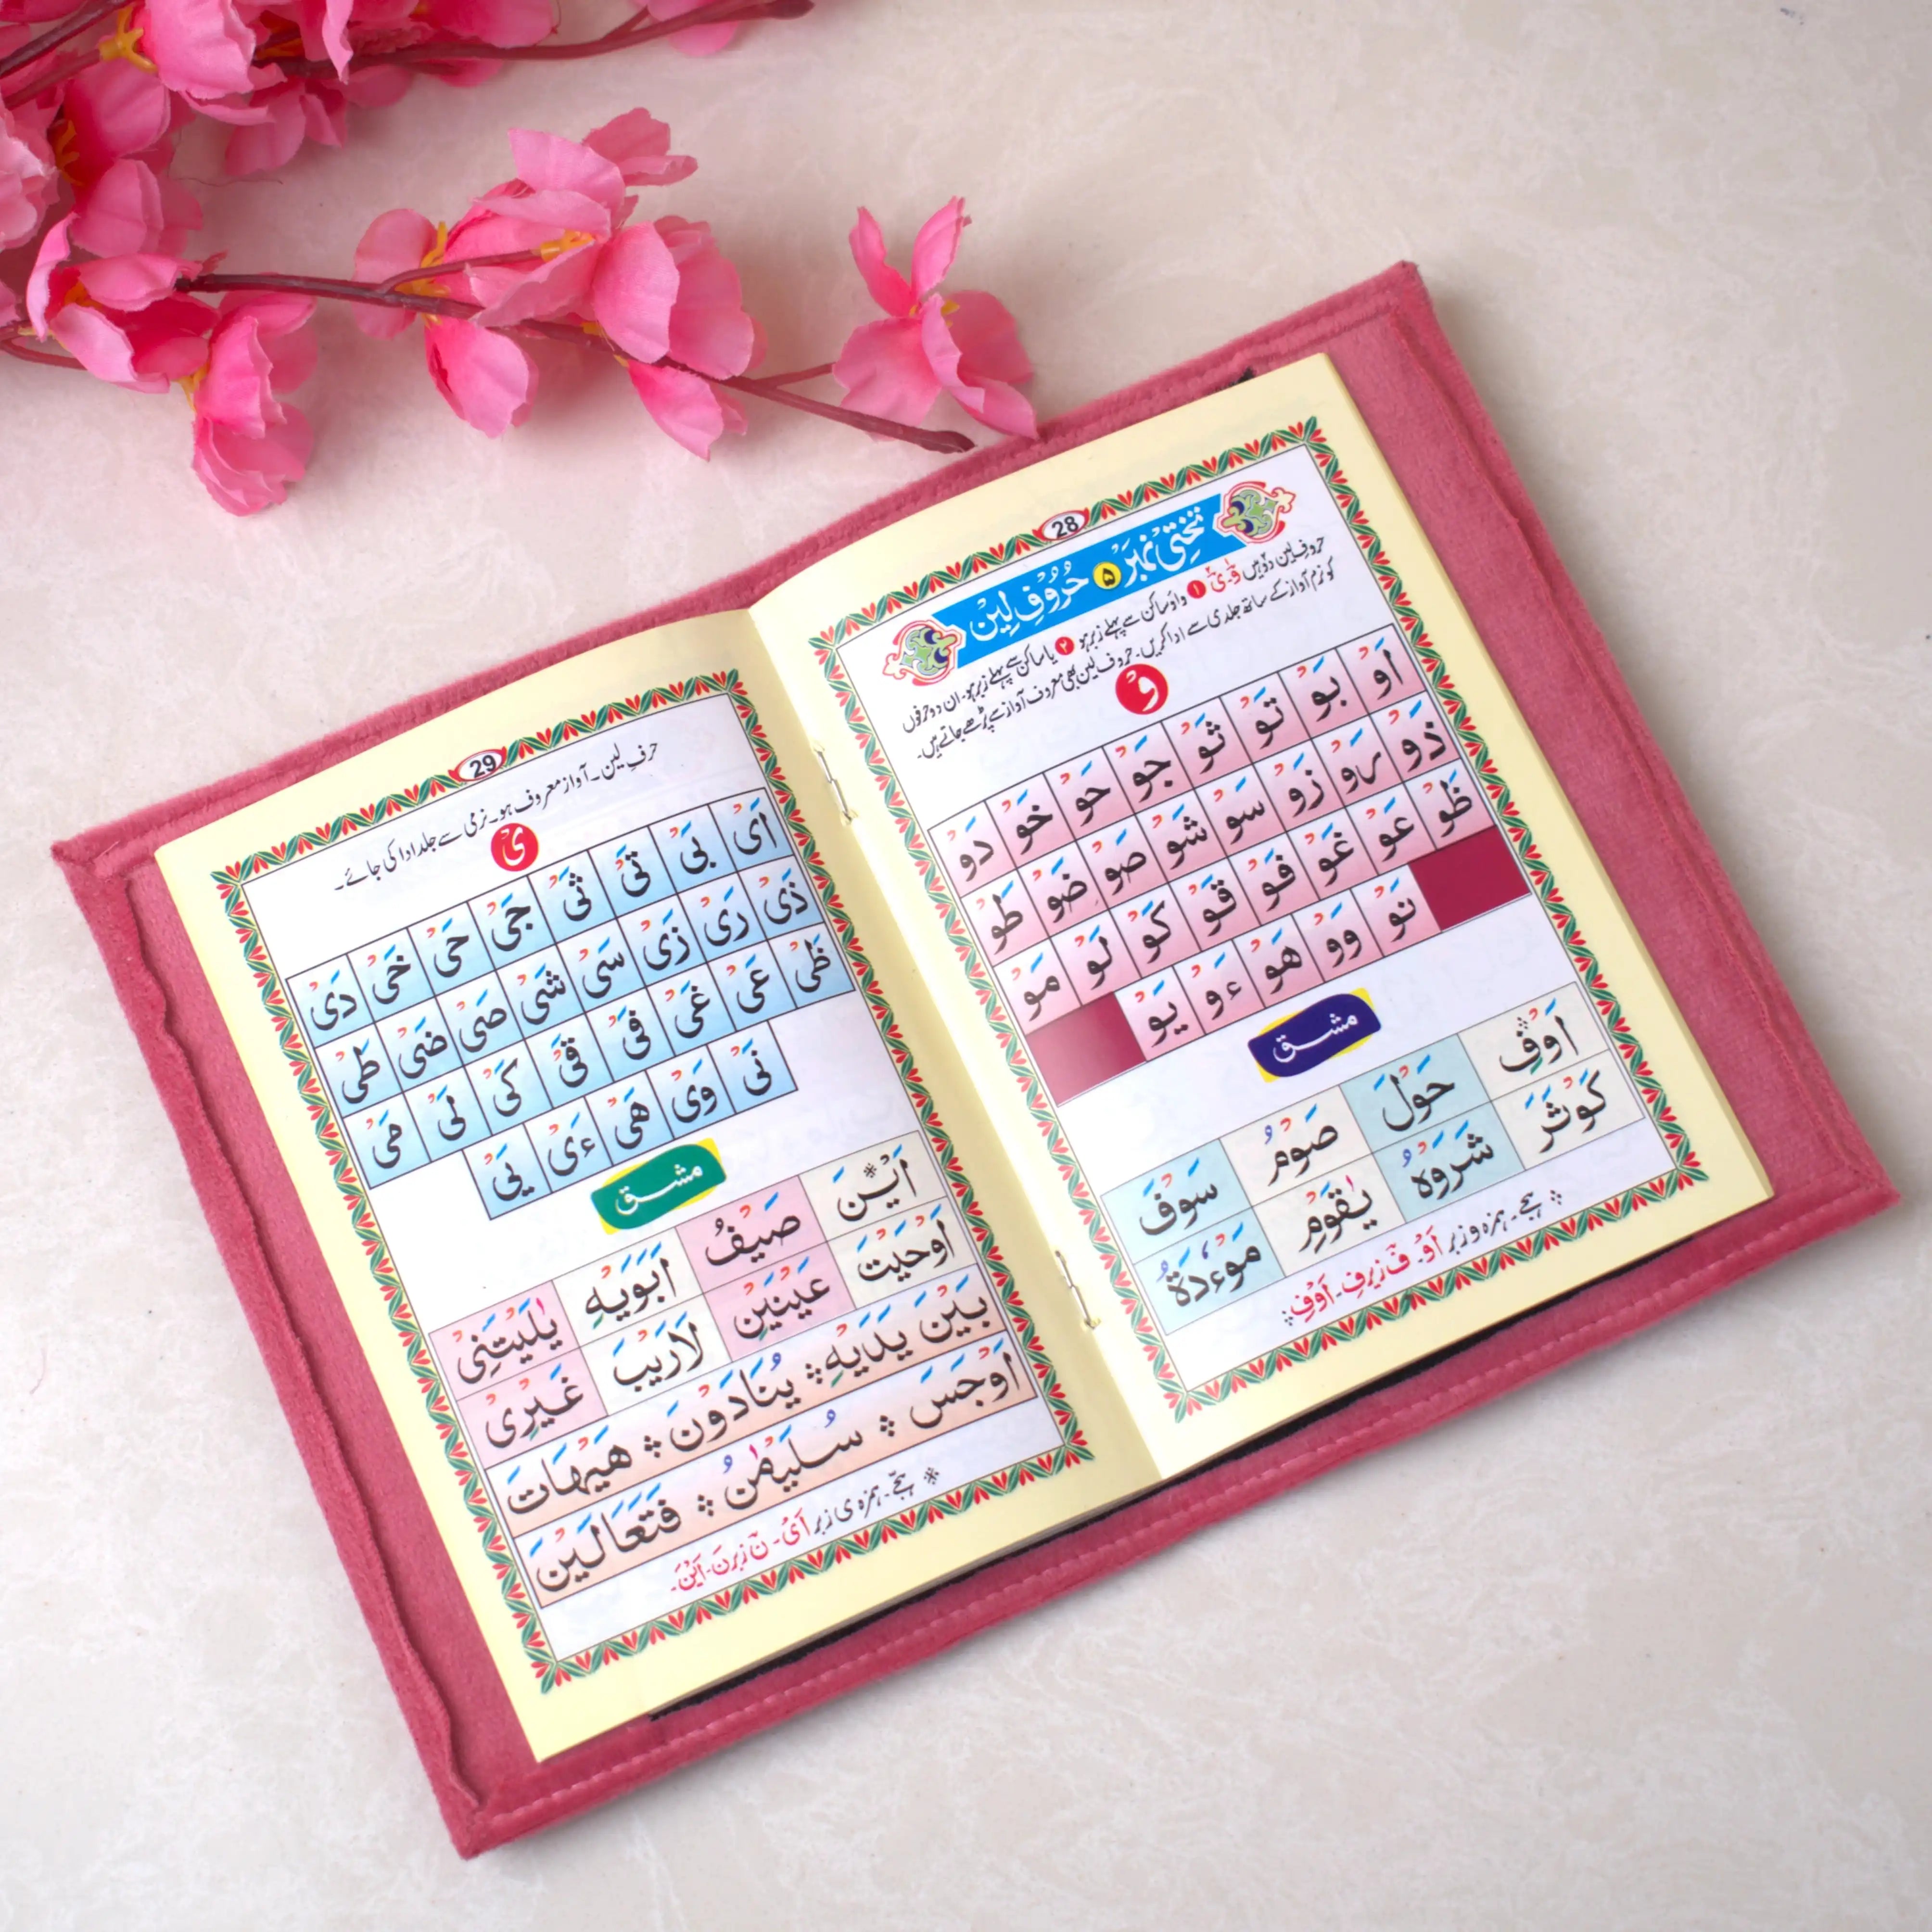 28
تختی نمبر ۵ حُرُوفِ لِین
حروفِ لین دو ہیں وْ۔یْ ۱ واؤ ساکن سے پہلے زبر ہو ۲ یا ساکن سے پہلے زبر ہو۔ ان دو حرفوں
کو نرم آواز کے ساتھ جلدی سے ادا کریں۔ حروف لین بھی معروف آواز سے پڑھے جاتے ہیں۔
وْ
اَوْ بَوْ تَوْ ثَوْ جَوْ حَوْ خَوْ دَوْ
ذَوْ رَوْ زَوْ سَوْ شَوْ صَوْ ضَوْ طَوْ
ظَوْ عَوْ غَوْ فَوْ قَوْ كَوْ لَوْ مَوْ
نَوْ وَوْ هَوْ ءَوْ یَوْ
مشق
اَوْفِ حَوْلَ صَوْمُ سَوْفَ
كَوْثَرَ شَرَوْهُ یٰقَوْمِ مَوْءٗدَةُ
ہجے۔ ہمزہ و زبر اَوْ۔ فَ زیر فِ۔ اَوْفِ
29
حرفِ لین۔ آواز معروف ہو۔ نرمی سے جلد ادا کی جائے۔
یْ
اَیْ بَیْ تَیْ ثَیْ جَیْ حَیْ خَیْ دَیْ
ذَیْ رَیْ زَیْ سَیْ شَیْ صَیْ ضَیْ طَیْ
ظَیْ عَیْ غَیْ فَیْ قَیْ كَیْ لَیْ مَیْ
نَیْ وَیْ هَیْ ءَیْ یَیْ
مشق
اَیْنَ صَیْفُ اَبَوَیْهِ یٰلَیْتَنِیْ
اَوْحَیْتَ عَیْنَیْنِ لَارَیْبَ غَیْرِیْ
بَیْنَ یَدَیْهِ یُنَادَوْنَ هَیْهَاتَ
اَوْجَسَ سُلَیْمٰنُ فَتَعَالَیْنَ
ہجّے۔ ہمزہ ی زبر اَیْ۔ نَ زبر نَ۔ اَیْنَ۔